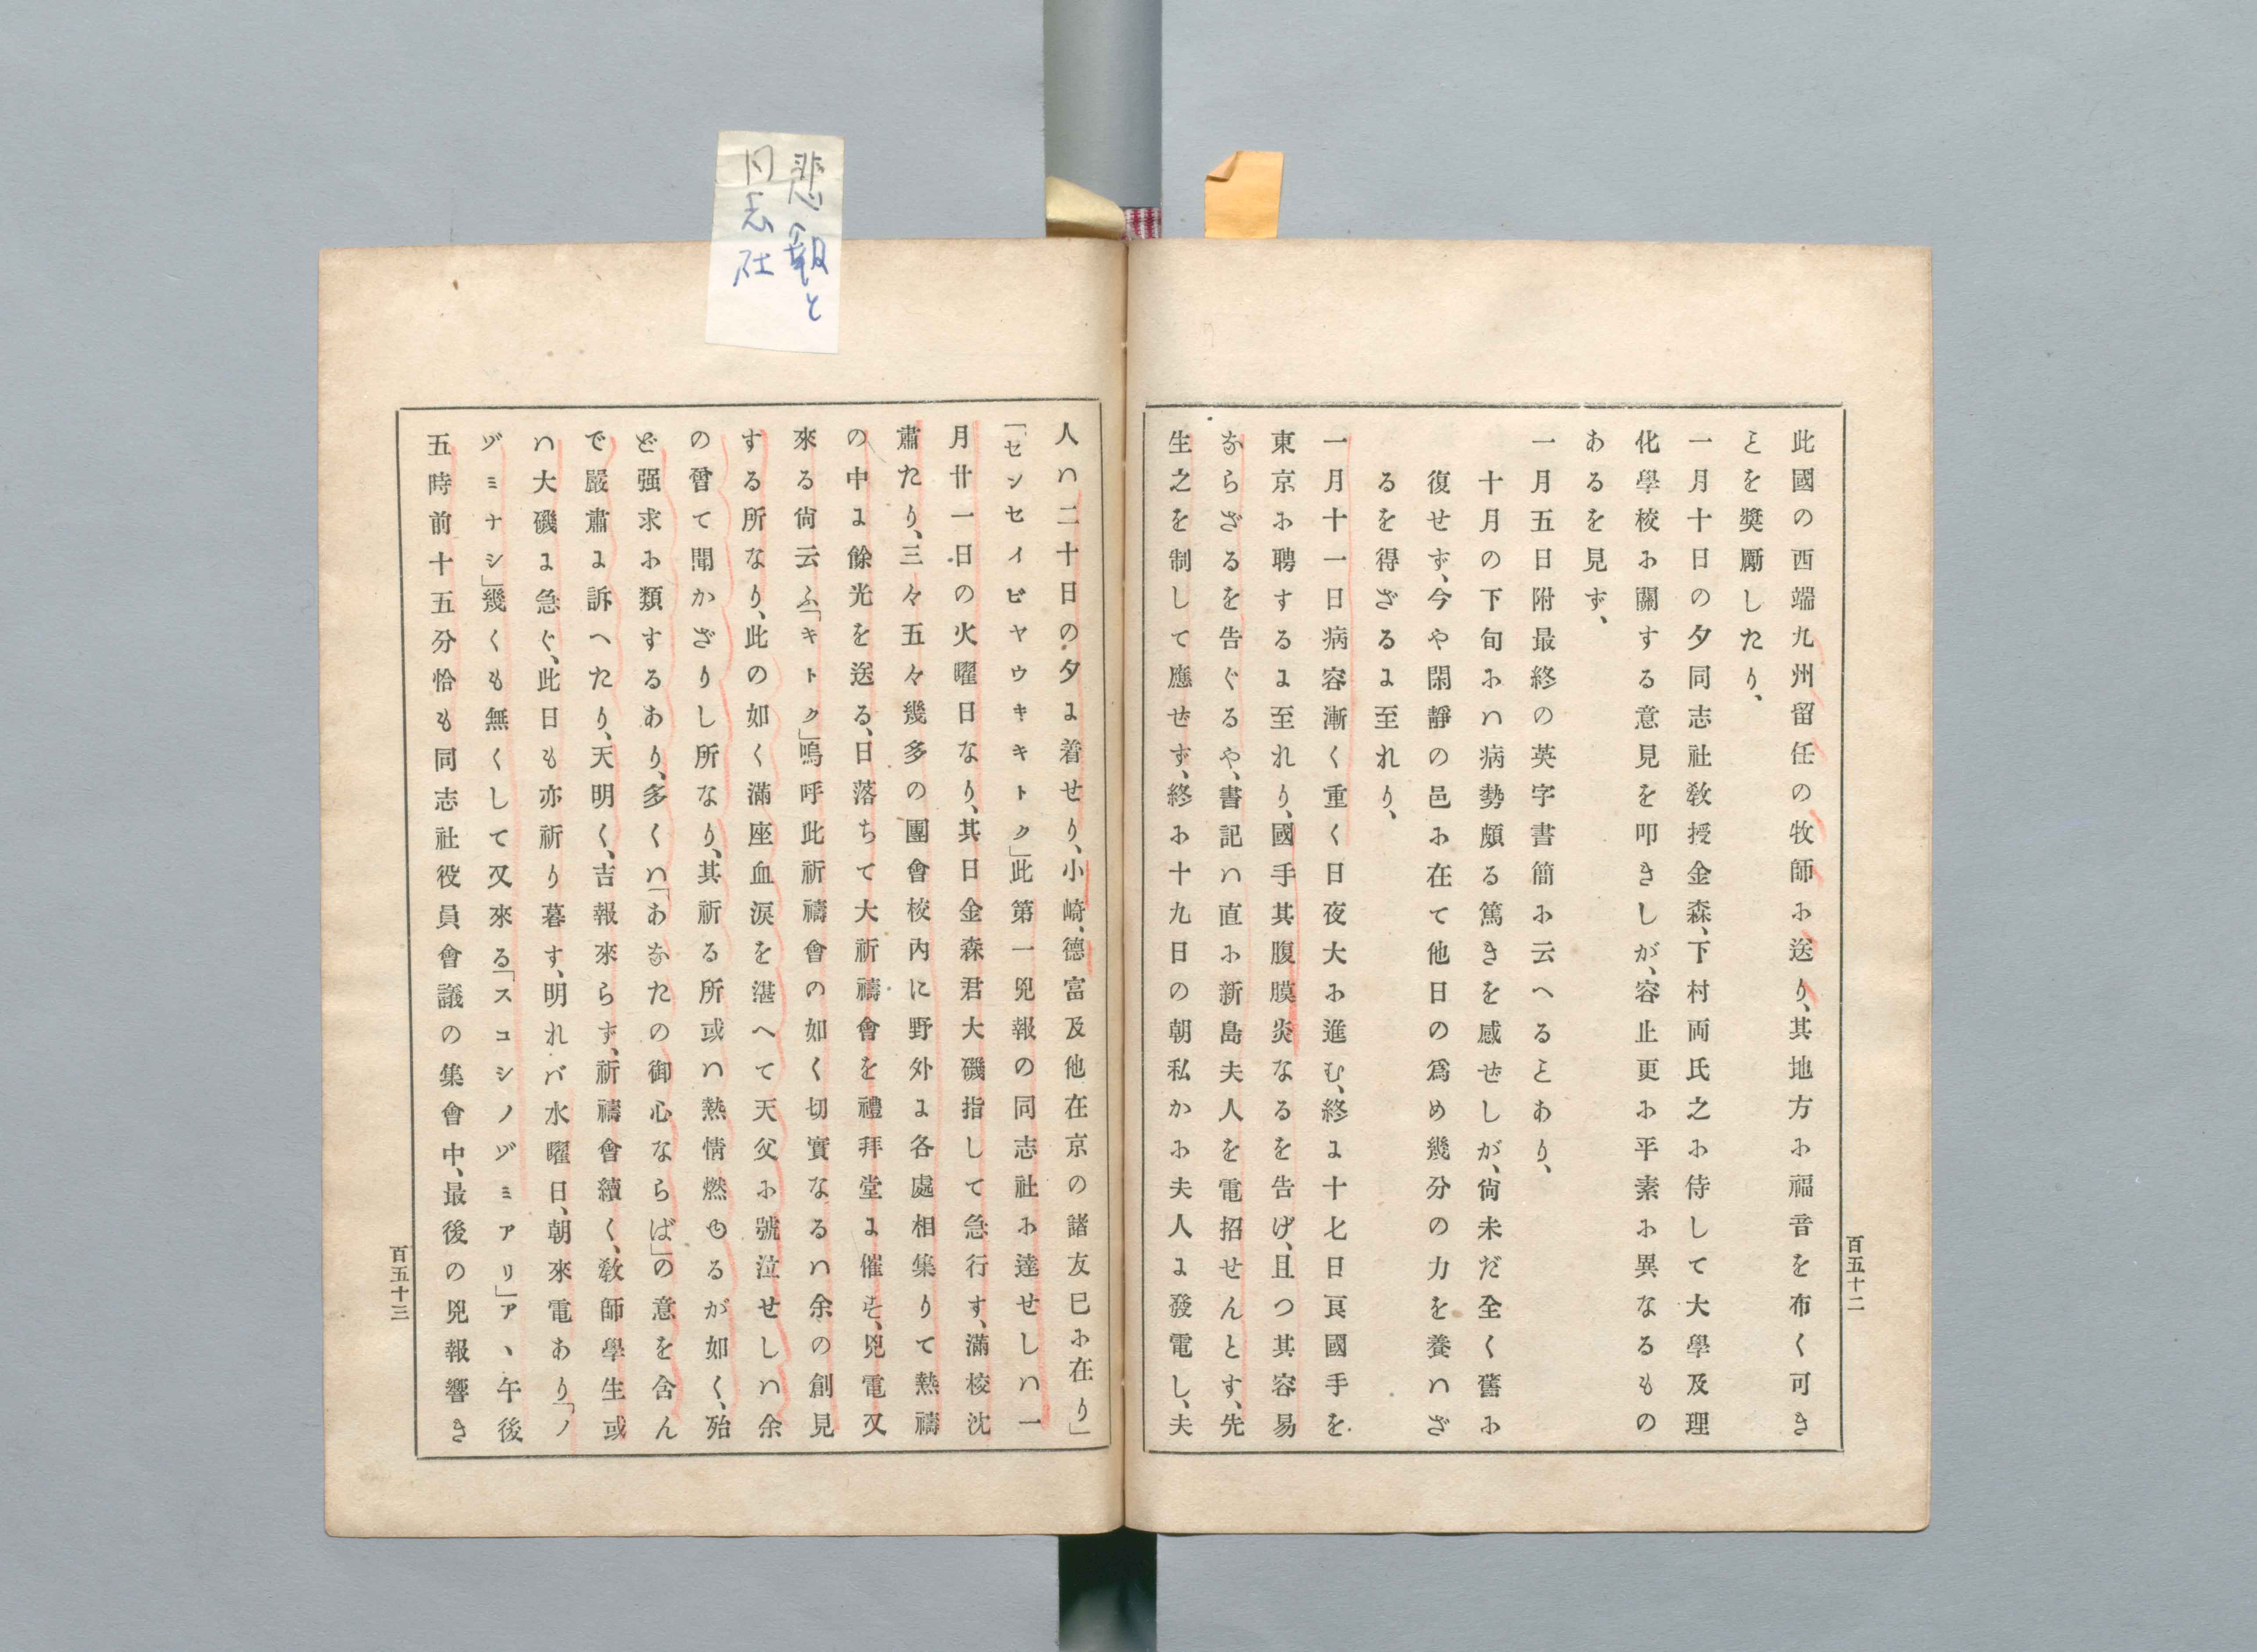 悲報と
同志社
此國の西端九州留任の牧師に送り、其地方に福音を布く可き
ことを奬勵したり、
一月十日の夕同志社敎授金森、下村両氏之に侍して大學及理
化學校に關する意見を叩きしが、容止更に平素に異なるもの
あるを見ず、
一月五日附最終の英字書簡に云へることあり、
十月の下旬にハ病勢頗る篤きを感ぜしが、尙未だ全く舊に
復せず、今や閑靜の邑に在て他日の爲め幾分の力を養ハざ
るを得ざるに至れり、
一月十一日病容漸く重く日夜大に進む、終に十七日良國手を
東京に聘するに至れり、國手其腹膜炎なるを告げ、且つ其容易
ならざるを告ぐるや、書記ハ直に新島夫人を電招せんとす、先
生之を制して應ぜず、終に十九日の朝私かに夫人に發電し、夫
百五十二
人ハ二十日の夕に着せり、小崎、德富及他在京の諸友已に在り」
「センセイビヤウキキトク」此第一兇報の同志社に達せしハ一
月廿一日の火曜日なり、其日金森君大磯指して急行す、滿校沈
肅たり、三々五々幾多の團會校內に野外に各處相集りて熱禱
の中に餘光を送る、日落ちて大祈禱會を禮拜堂に催す、兇電又
來る尙云ふ「キトク」嗚呼此祈禱會の如く切實なるハ余の創見
する所なり、此の如く滿座血淚を湛へて天父に號泣せしハ余
の曾て聞かざりし所なり、其祈る所或ハ熱情燃もるが如く、殆
ど强求に類するあり、多くハ「あなたの御心ならば」の意を含ん
で嚴肅に訴へたり、天明く、吉報來らず、祈禱會續く、敎師學生或
ハ大磯に急ぐ、此日も亦祈り暮す、明れバ水曜日、朝來電あり「ノ
ゾミナシ」幾くも無くして又來る「スコシノゾミアリ」アヽ午後
五時前十五分恰も同志社役員會議の集會中、最後の兇報響き
百五十三